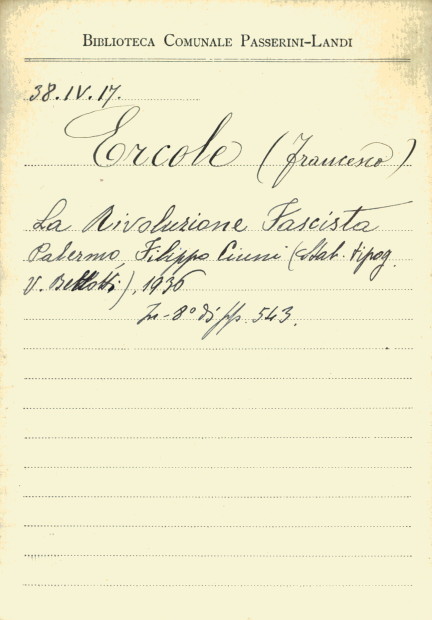 BIBLIOTECA COMUNALE PASSERINI-LANDI
38.IV.17.
Ercole (Francesco)
La Rivoluzione Fascista
Palermo, Filippo Ciuni (Stab. tipog.
V. Bellotti), 1936
In-8° di pp. 543.